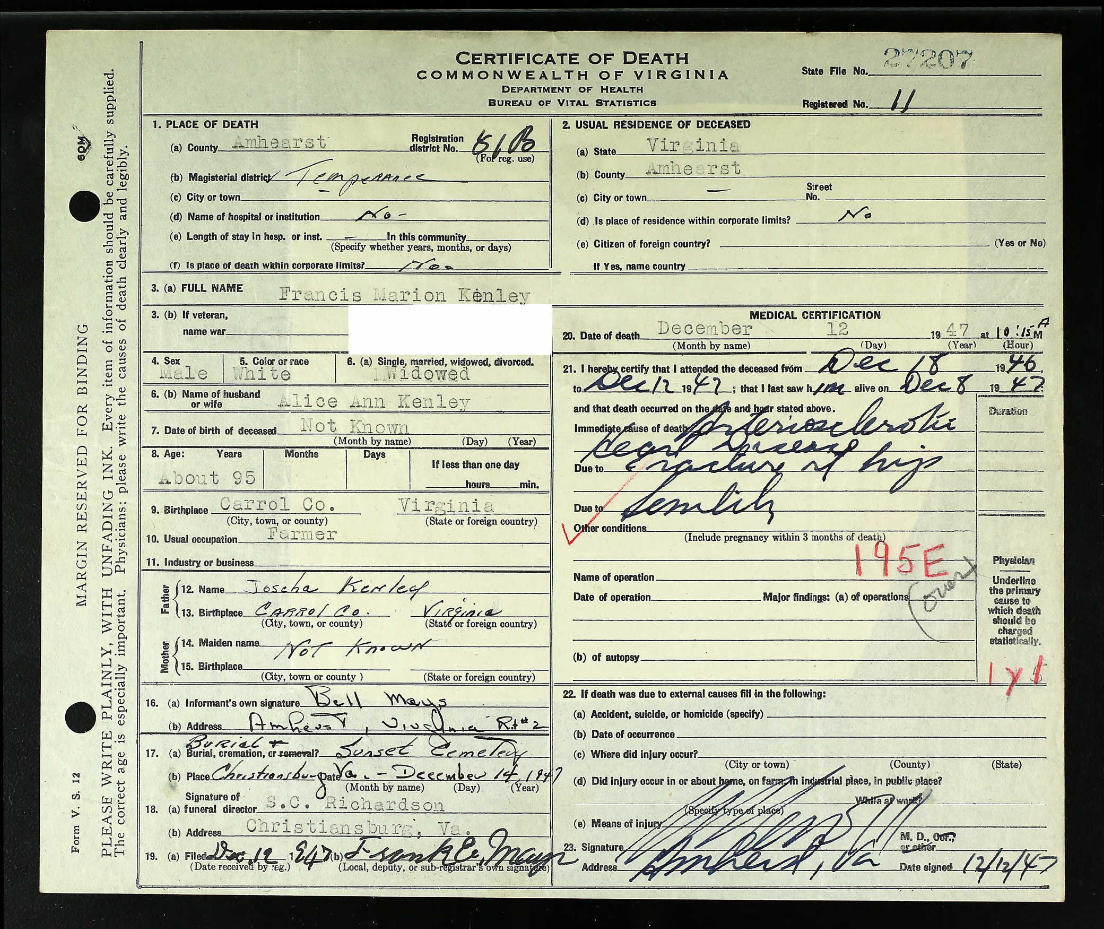 CERTIFICATE OF DEATH
COMMONWEALTH OF VIRGINIA
DEPARTMENT OF HEALTH
BUREAU OF VITAL STATISTICS
State File No. 27207
Registered No. 11
Form V. S. 12
MARGIN RESERVED FOR BINDING
PLEASE WRITE PLAINLY, WITH UNFADING INK. Every item of information should be carefully supplied.
The correct age is especially important. Physicians: please write the causes of death clearly and legibly.
1. PLACE OF DEATH
(a) County Amhearst Registration district No.
(For reg. use)
(b) Magisterial district Temperance
(c) City or town
(d) Name of hospital or institution No-
(e) Length of stay in hosp. or inst. — In this community
(Specify whether years, months, or days)
(f) Is place of death within corporate limits? No-
2. USUAL RESIDENCE OF DECEASED
(a) State Virginia
(b) County Amhearst
(c) City or town — Street No.
(d) Is place of residence within corporate limits? No
(e) Citizen of foreign country? (Yes or No)
If Yes, name country
3. (a) FULL NAME Francis Marion Kenley
3. (b) If veteran,
name war
4. Sex Male
5. Color or race White
6. (a) Single, married, widowed, divorced. Widowed
6. (b) Name of husband or wife Alice Ann Kenley
7. Date of birth of deceased Not Known
(Month by name) (Day) (Year)
8. Age: Years Months Days If less than one day
About 95 hours min.
9. Birthplace Carrol Co. Virginia
(City, town, or county) (State or foreign country)
10. Usual occupation Farmer
11. Industry or business
Father
12. Name Joscha Kenley
13. Birthplace CARROL CO. Virginia
(City, town, or county) (State or foreign country)
Mother
14. Maiden name Not Known
15. Birthplace
(City, town, or county) (State or foreign country)
16. (a) Informant's own signature Bell Mays
(b) Address Amherst, Virginia Rt #2
17. (a) Burial, cremation, or removal? Burial + Sunset Cemetery
(b) Place Christiansburg Va. - Date December 14, 1947
(Month by name) (Day) (Year)
18. (a) Signature of funeral director S.C. Richardson
(b) Address Christiansburg, Va.
19. (a) Filed Dec. 12 1947 (b) Frank C. Mays
(Date received by reg.) (Local, deputy, or sub-registrar's own signature)
MEDICAL CERTIFICATION
20. Date of death December 12 1947 at 10:15 A M
(Month by name) (Day) (Year) (Hour)
21. I hereby certify that I attended the deceased from Dec 18 1946
to Dec 12 1947; that I last saw him alive on Dec 8 1947
and that death occurred on the date and hour stated above.
Duration
Immediate cause of death Arteriosclerotic
heart disease
Due to fracture of hip
Due to Senility
Other conditions
(Include pregnancy within 3 months of death)
195E
Name of operation
Date of operation Major findings: (a) of operations
(over)
(b) of autopsy
Physician
Underline the primary cause to which death should be charged statistically.
1y1
22. If death was due to external causes fill in the following:
(a) Accident, suicide, or homicide (specify)
(b) Date of occurrence
(c) Where did injury occur?
(City or town) (County) (State)
(d) Did injury occur in or about home, on farm, in industrial place, in public place?
While at work?
(Specify type of place)
(e) Means of injury
23. Signature M. D., Cor., or other
Address Amherst, Va Date signed 12/12/47